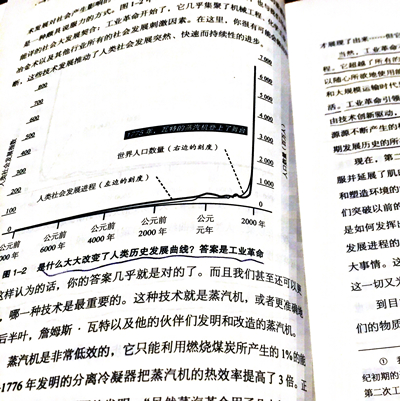 是一种颇具说服力的方式。图1-2
能详的社会大发展契合：工业革命开始了，它几乎集聚了机械工程、化
冶金术以及其他行业所有的社会发展刺激因素。在这里，你很有可能会
断，这些技术发展推动了人类社会发展突然、快速而持续性的进步。
800
700
600
500
400
300
200
100
0
人类社会发展指数
7 000
6 000
5 000
4 000
3 000
2 000
1 000
0
1776年，瓦特的蒸汽机登上了舞台
世界人口数量（右边的刻度）
人类社会发展进程（左边的刻度）
公元前
6000年
公元前
4000年
公元前
2000年
公元
元年
公元
2000年
图1-2 是什么大大改变了人类历史发展曲线？答案是工业革命
这样认为的话，你的答案几乎就是对的了。而且我们甚至还可以更
，哪一种技术是最重要的。这种技术就是蒸汽机，或者更准确地
后半叶，詹姆斯·瓦特以及他的伙伴们发明和改造的蒸汽机。
蒸汽机是非常低效的，它只能利用燃烧煤炭所产生的1%的能
1776年发明的分离冷凝器把蒸汽机的热效率提高了3倍。正
才展现了出来
当然，工业革命
程，它超越了所有的
以随心所欲地使用能
和大规模运输时代
活。工业革命引领
由技术创新驱动，
源源不断产生的
期发展历史的所
现在，第二
服并延展了肌
和塑造环境的
们突破以前的
是如何发挥出
发展进程的
大事情。这
这一切又为
到目
们的物质
① 我
纪初期的
第二次工